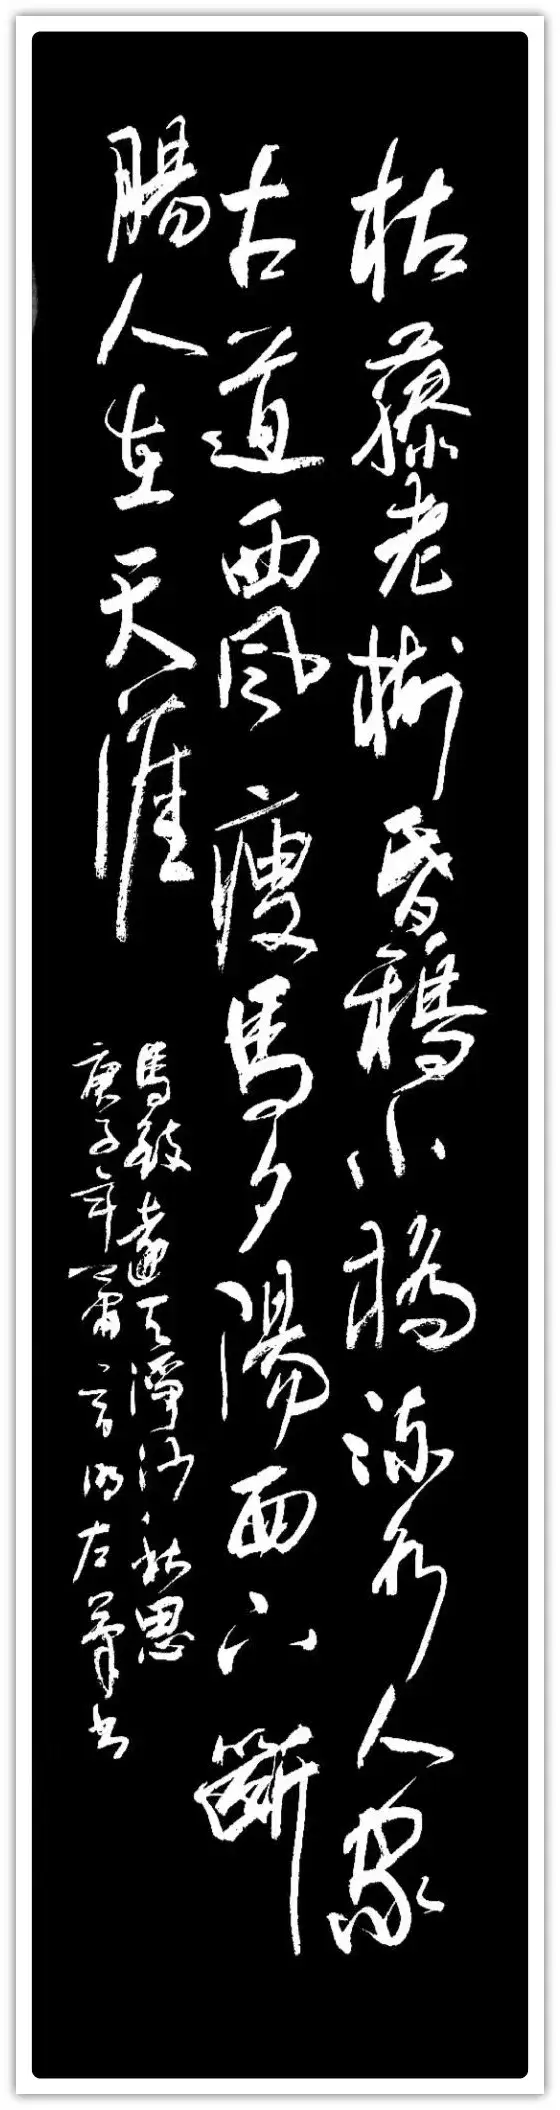 枯藤老樹昏鴉小橋流水人家
古道西風瘦馬夕陽西下斷
腸人在天涯
馬致遠天淨沙秋思
庚子年蕭言明左筆书